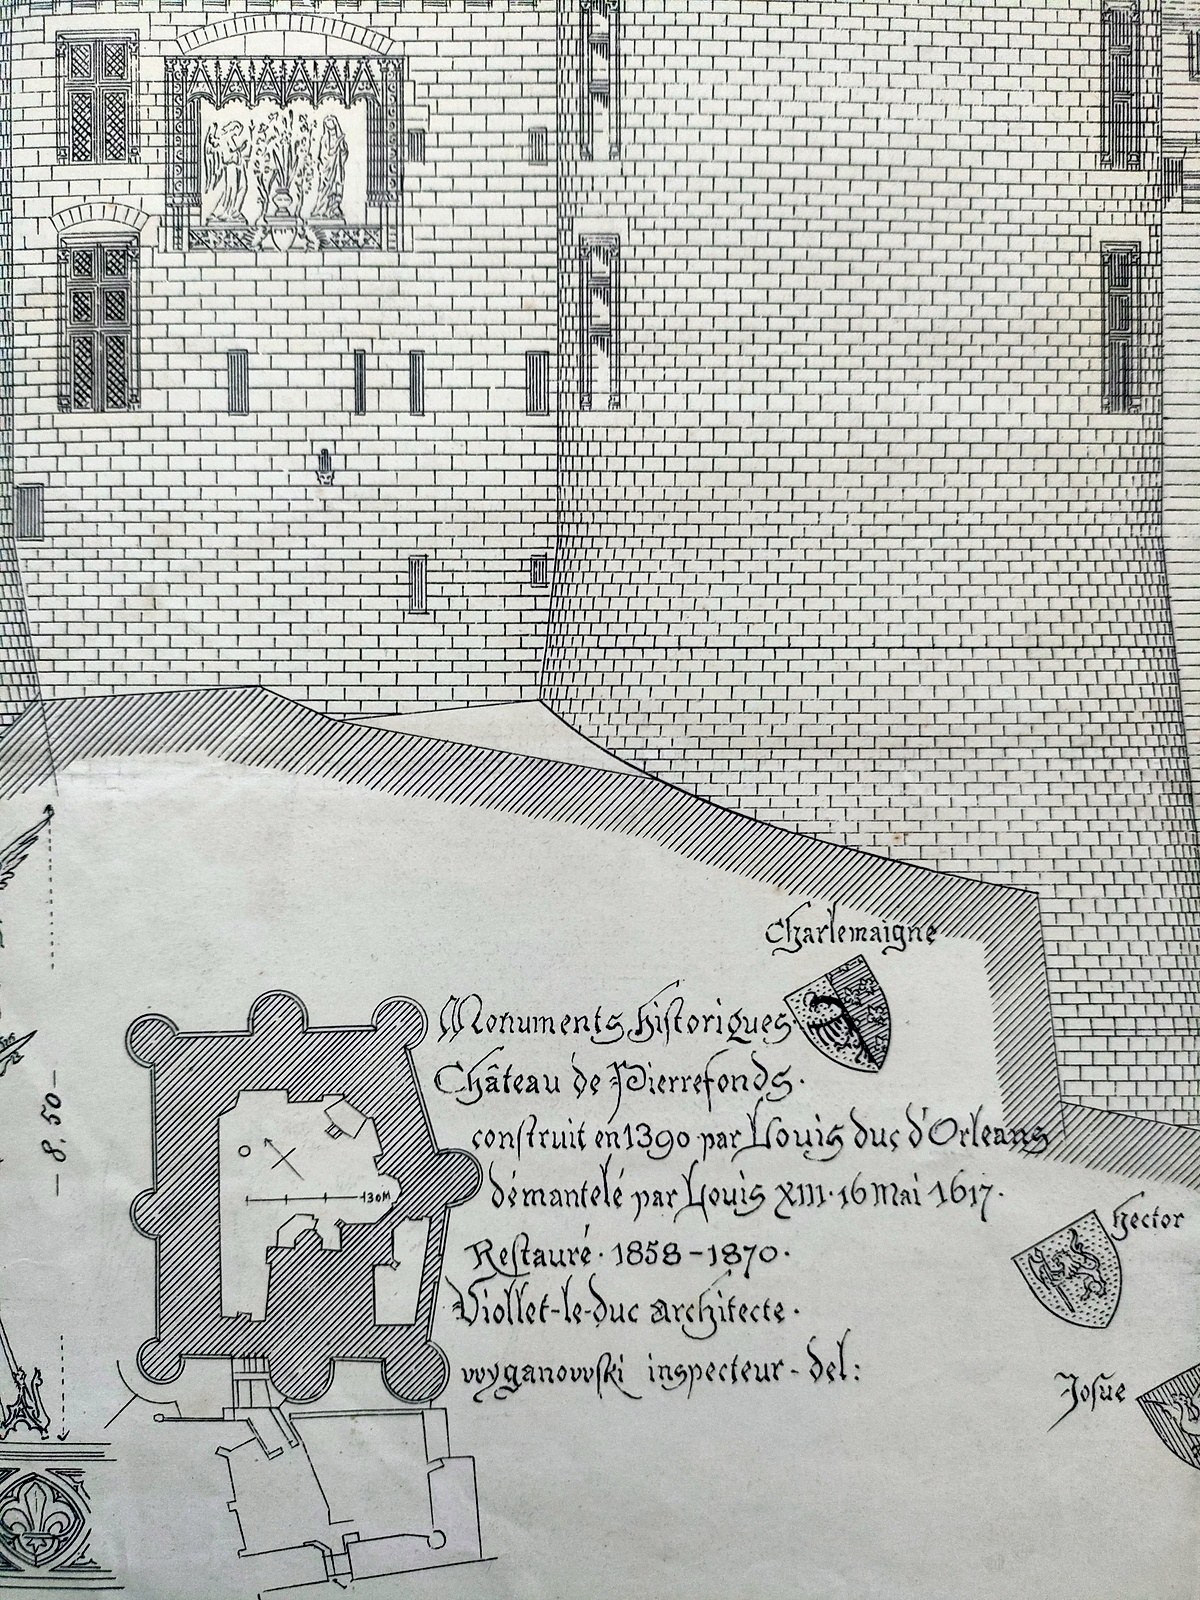 Charlemaigne
Monuments historiques.
Château de Pierrefonds.
construit en 1390 par Louis duc d'Orleans
démantelé par Louis XIII. 16 Mai 1617.
Restauré. 1858-1870.
Viollet-le-duc architecte.
wyganowski inspecteur-del:
Hector
Josue
8.50
130M